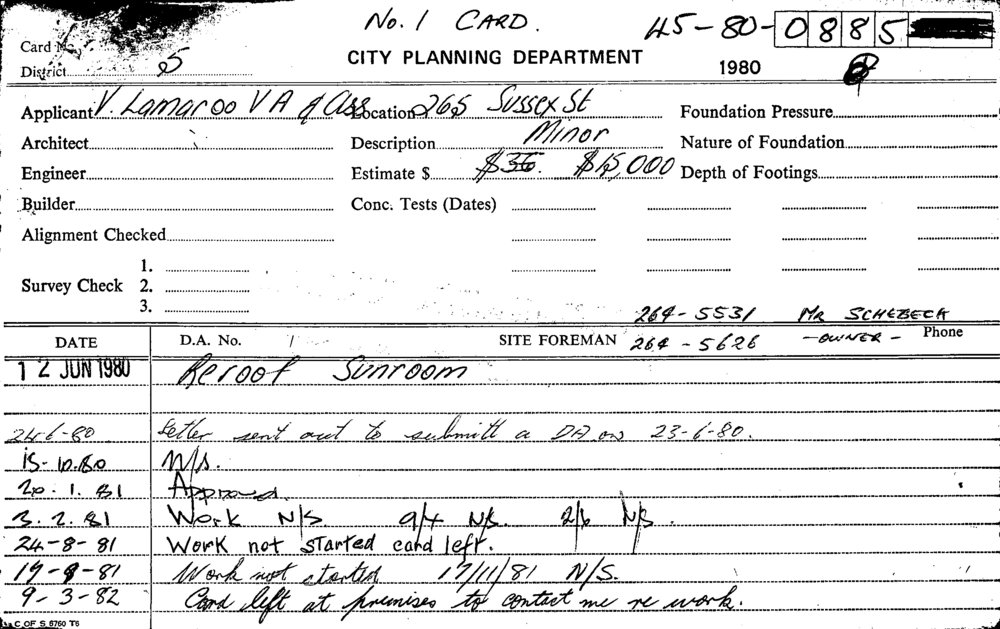 No. 1 CARD.
45-80-0885
Card No.
District S
CITY PLANNING DEPARTMENT
1980
Applicant V. Lamaroo V A & Ass Location 265 Sussex St Foundation Pressure
Architect Description Minor Nature of Foundation
Engineer Estimate $ $15,000 Depth of Footings
Builder Conc. Tests (Dates)
Alignment Checked
1.
Survey Check 2.
3.
264-5531 MR SCHEBECK
DATE D.A. No. SITE FOREMAN 264-5626 -OWNER- Phone
12 JUN 1980 Reroof Sunroom
24-6-80 Letter sent out to submitt a DA on 23-6-80.
15-10-80 N/S.
20.1.81 Approved.
3.2.81 Work N/S. 9/4 N/S. 2/6 N/S.
24-8-81 Work not started card left.
Work not started 17/11/81 N/S.
9-3-82 Card left at premises to contact me re work.
C OF S 6760 T6